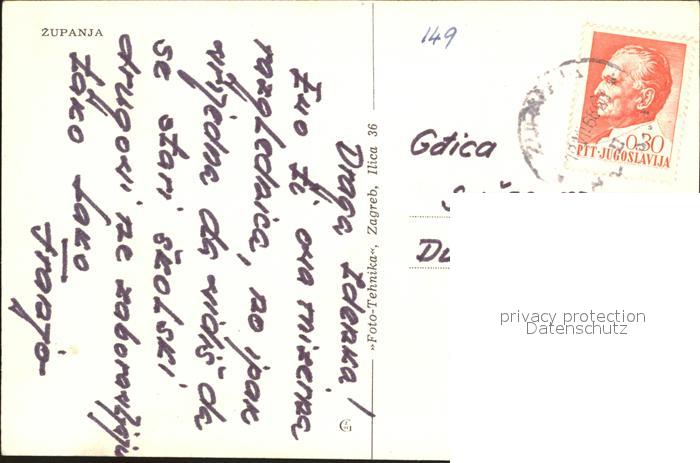 ŽUPANJA
149
Draga Zdenka!
Evo ti ova mizerna
razglednica, no ipak
vrijedna da vidiš da
se stari školski
drugovi ne zaboravljaju
tako lako
Franjo
»Foto-Tehnika«, Zagreb, Ilica 36
0.30
PTT-JUGOSLAVIJA
Gđica
privacy protection
Datenschutz